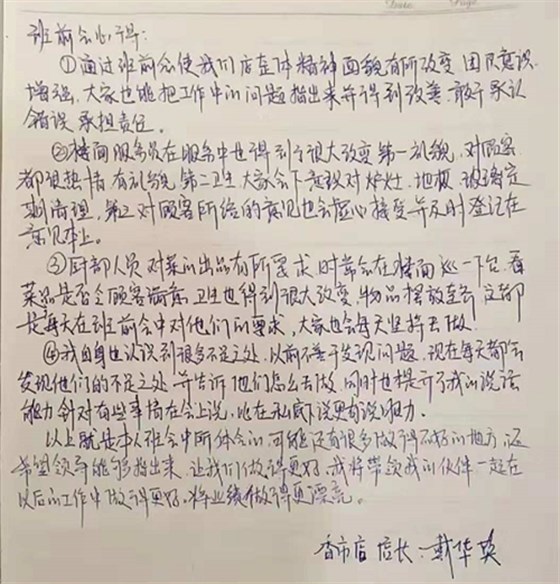 班前会心得:
①通过班前会使我们店整体精神面貌有所改变 团队意识
增强,大家也能把工作中的问题指出来并得到改善,敢于承认
错误 承担责任。
②楼面服务员在服务中也得到了很大改变 第一礼貌,对顾客
都很热情 有礼貌,第二卫生 大家会下意识对炉灶、地板、玻璃定
期清理,第三对顾客所给的意见也会虚心接受并及时登记在
意见本上。
③厨部人员对菜的出品有所要求,时常会在楼面巡一下台,看
菜品是否令顾客满意 卫生也得到很大改变,物品摆放 都
是每天在班前会中对他们的要求,大家也会每天坚持去做。
④我自身也认识到很多不足之处,以前不善于发现问题,现在每天都会
发现他们的不足之处 并告诉他们怎么去做,同时也提升了我的说话
能力 针对有些事情在会上说,比在私底下说更有说服力。
以上就是本人班会中所体会的,可能还有很多做得不好的地方,还
希望领导能够指出来,让我们做得更好,我将带领我的伙伴一起在
以后的工作中做得更好,将业绩做得更漂亮。
香市店 店长:戴华英